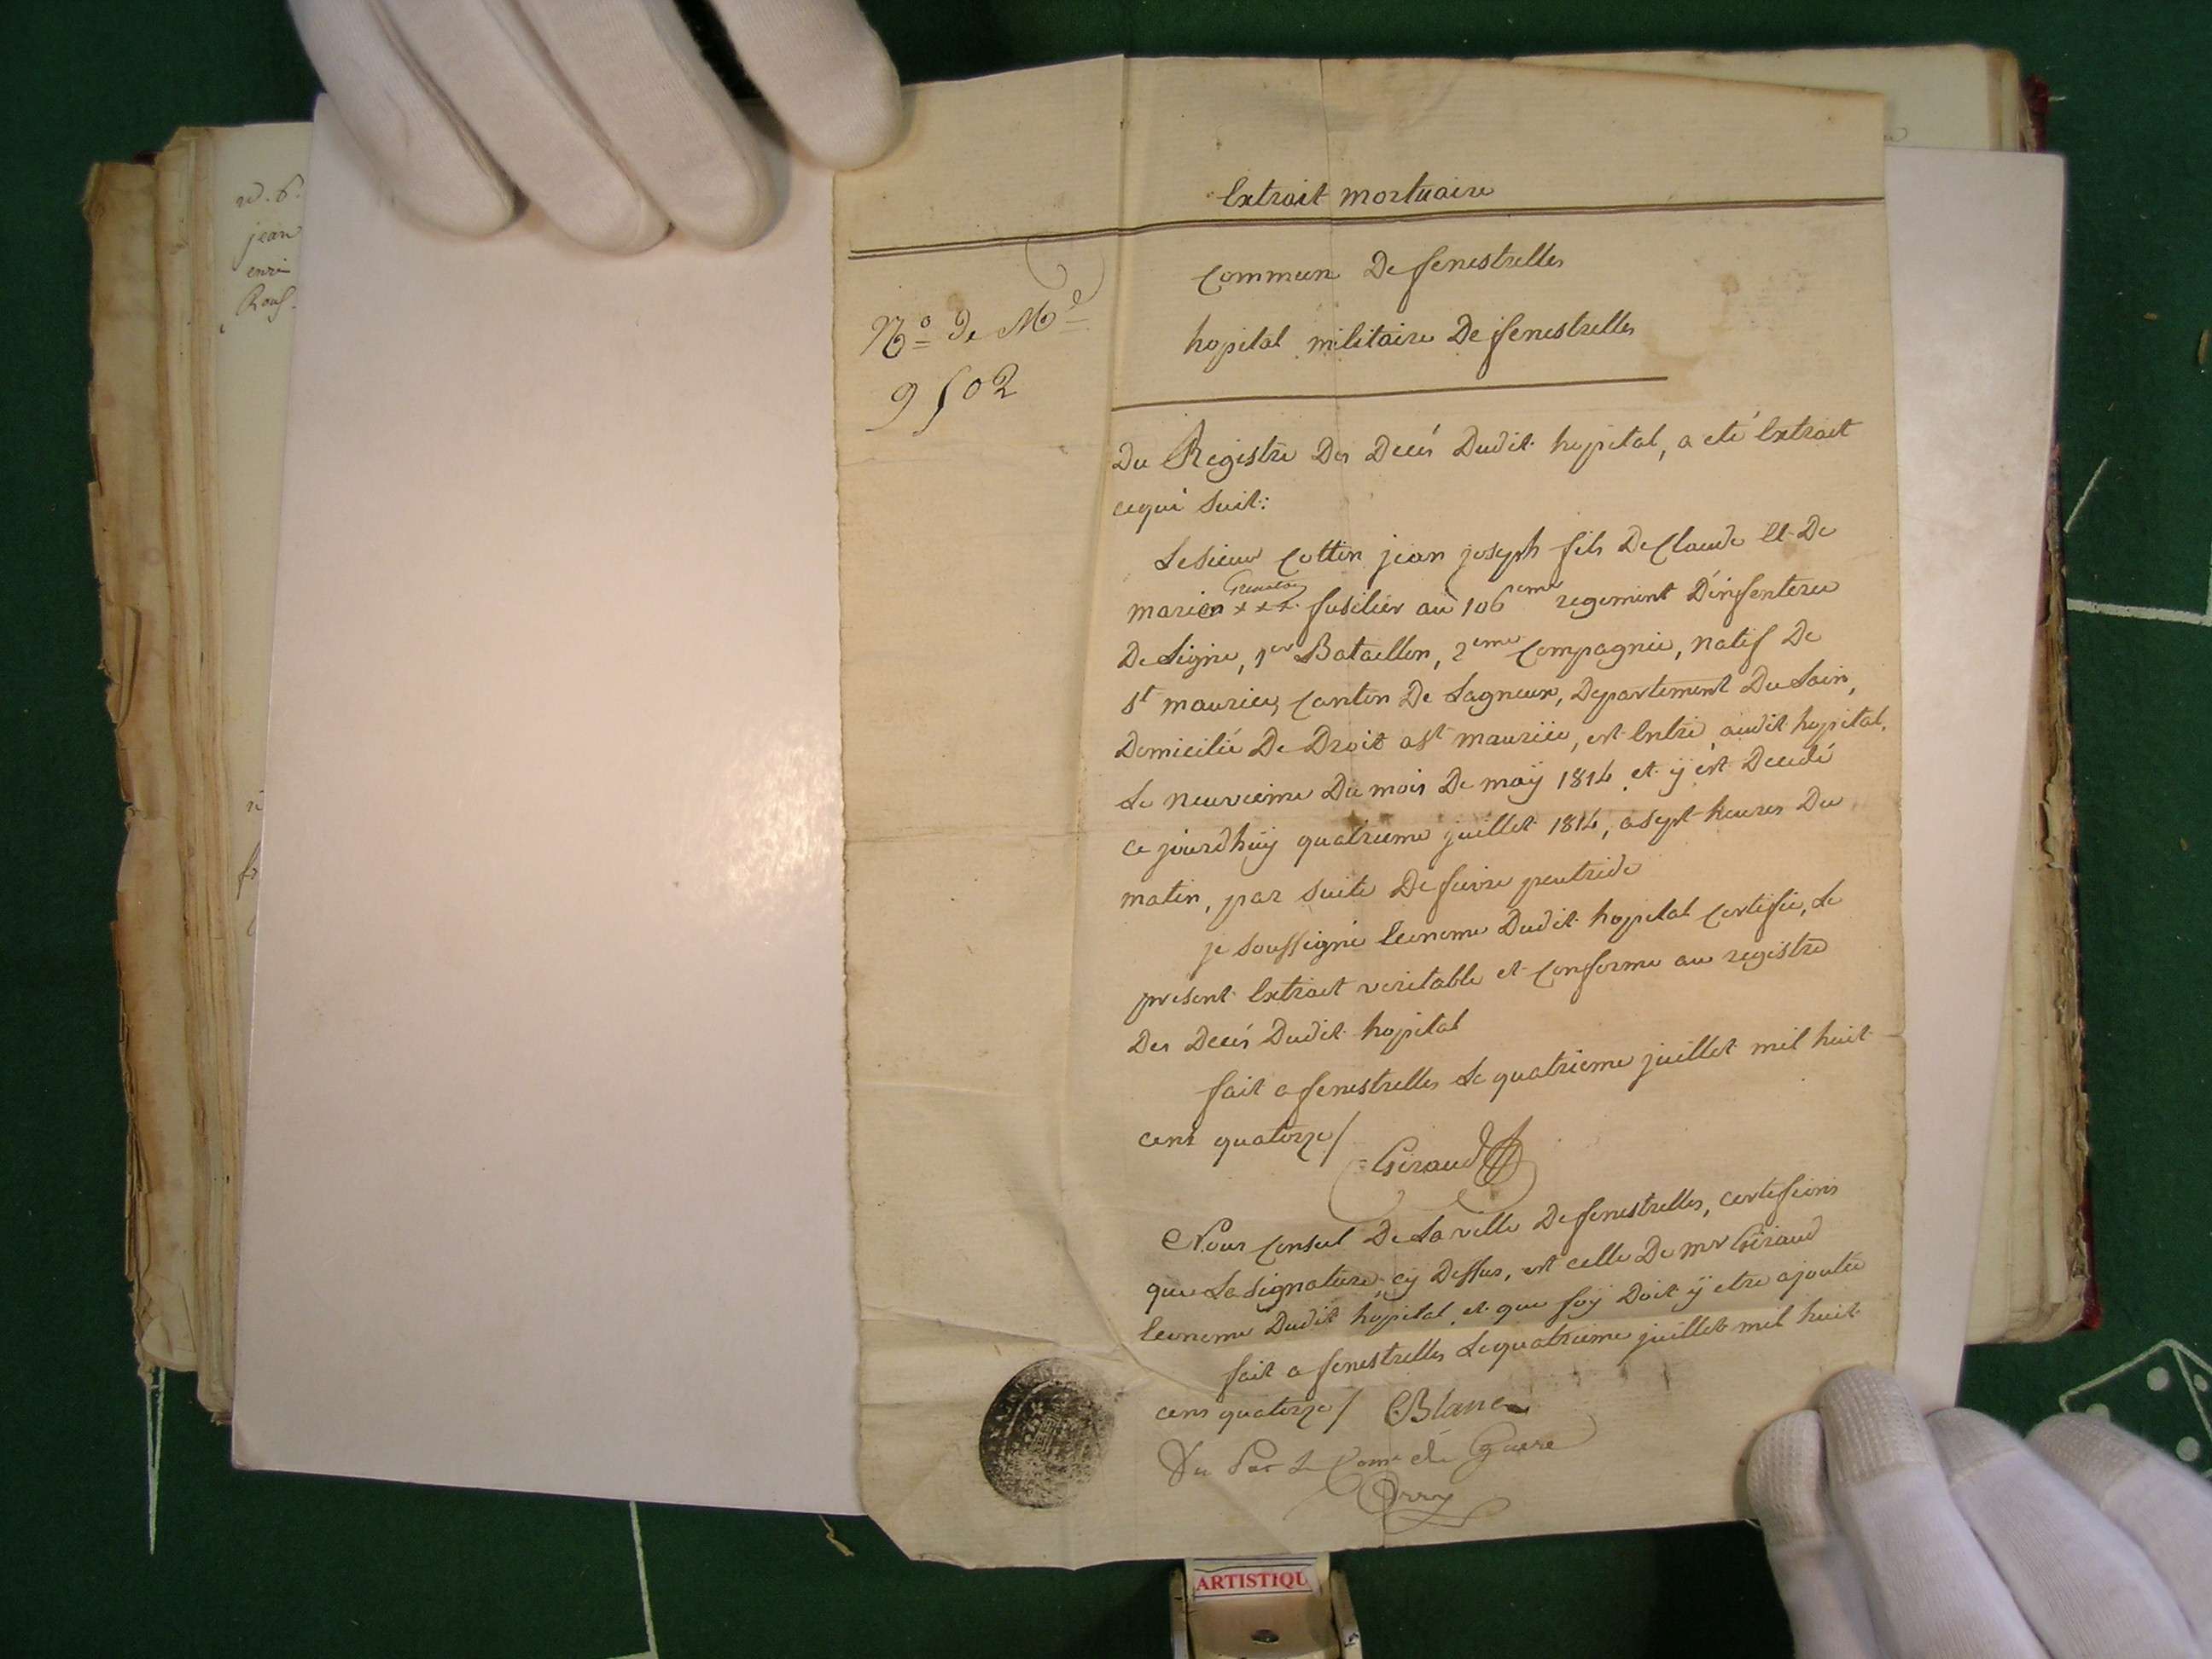 Extrait mortuaire
Commun De fenestrelles
hopital militaire De fenestrelles
No. de Me.
9502
Du Registre Des Decés Dudit hopital, a eté Extrait
ce qui suit:
Le Sieur Cottin jean joseph fils De Claude Et De
marie x x x fusilier au 106eme regiment D'infenterie
De Ligne, 1er Bataillon, 2eme Compagnie, natif De
St maurice, Canton De Lagneux, Departement Du Lain,
Domicilié De Droit a St maurice, est Entré audit hopital.
Le neuvieme Du mois De maÿ 1814 et ÿ est Decedé
ce jourdhuÿ quatrieme juillet 1814, a sept heures Du
matin, par Suite De fievre peutride
je Soussigné Econome Dudit hopital Certifie, Le
présent Extrait veritable et Conforme au registre
Des Decés Dudit hopital
fait a fenestrelles Le quatrieme juillet mil huit
cens quatorze /
Giraud
Nous Consul De La ville De fenestrelles, certifions
que La Signature, cÿ Dessus, est celle De mr Giraud
Econome Dudit hopital, et que foÿ Doit ÿ etre ajoutée
fait a fenestrelles Le quatrieme juillet mil huit
cens quatorze / Blanc
Vu Par Le Comre de Guere
Orry
n. 6.
jean
enri
Rous.
ARTISTIQU